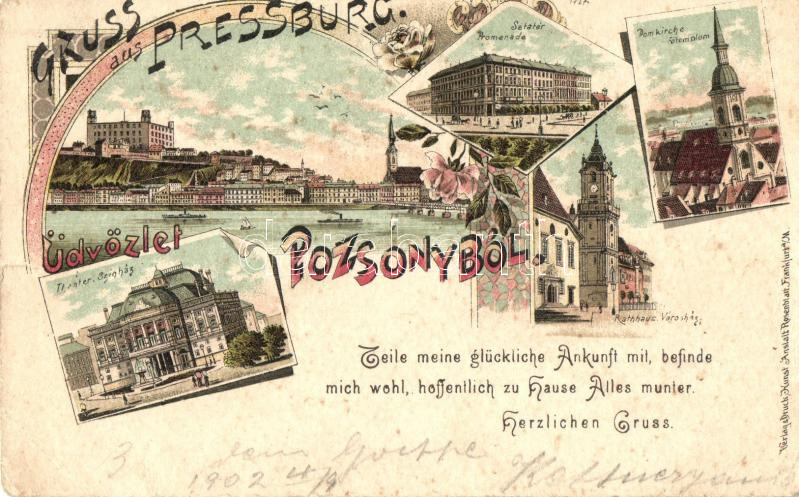 GRUSS aus PRESSBURG.
Sétatér
Promenade
Domkirche
Főtemplom
Üdvözlet POZSONYBÓL.
Theater. Szinház
Rathhaus. Városház.
Teile meine glückliche Ankunft mit, befinde
mich wohl, hoffentlich zu Hause Alles munter.
Herzlichen Gruss.
Verlag Druck Kunst-Anstalt Rosenblatt, Frankfurt a/M.
darabanth
3
1902